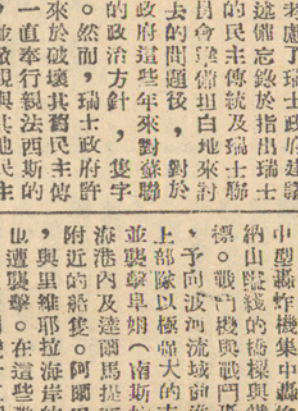 慮了瑞士政府建
述備忘錄於指出瑞士
的民主傳統及瑞士聯
會準備坦白地來討
去的問題後，對於
政府這些年來對蘇聯
的政治方針，隻字
。然而，瑞士政府許
來於破壞其舊民主傳
一直奉行親法西斯的
，並敵視與其他民主
中型轟炸機集中轟
納山隘綫的橋樑與
標。戰鬥機與戰鬥
，予向波河流域前
上部隊以極强大的
並襲擊阜姆（南斯
海港內及達爾馬提
附近的船隻。阿爾
，與里維耶拉海岸
也遭襲擊。在這些